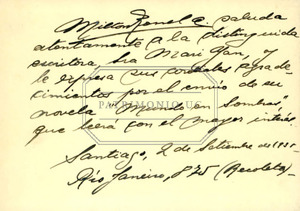 Milton Rossel saluda
atentamente a la distinguida
escritora, Sra Mari Yan, y
le expresa sus cordiales agrade-
cimientos por el envío de su
novela "Mundo en Sombra",
que leerá con el mayor interés.
Santiago, 2 de Setiembre de
Río Janeiro, 875 (Recoleta)-
PATRIMONIO.UC